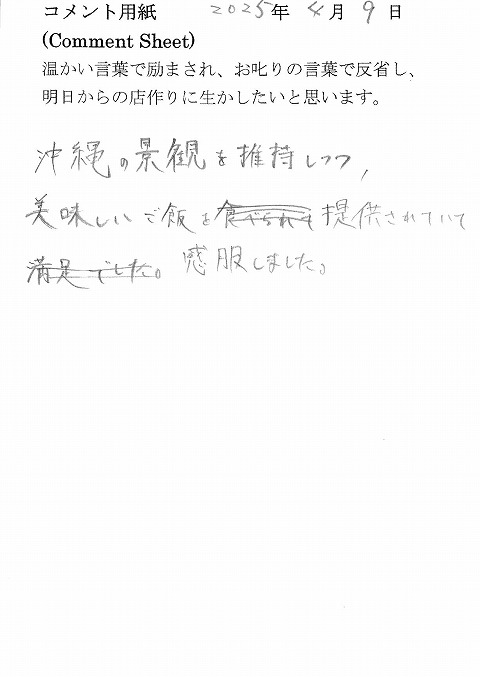 コメント用紙 2025年 4月 9日
(Comment Sheet)
温かい言葉で励まされ、お叱りの言葉で反省し、
明日からの店作りに生かしたいと思います。
沖縄の景観を推持しつつ,
美味しいご飯を食べられて提供されていて
満足でした。感服しました。